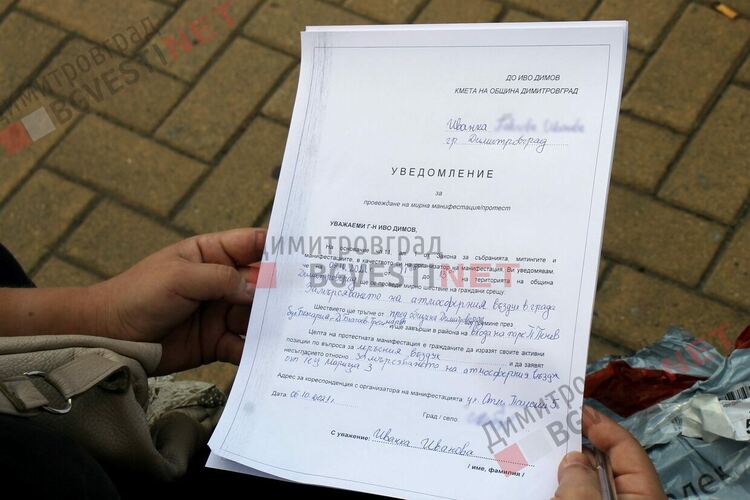 ДО ИВО ДИМОВ
КМЕТА НА ОБЩИНА ДИМИТРОВГРАД
Иванка
гр Димитровград
УВЕДОМЛЕНИЕ
за
провеждане на мирна манифестация/протест
УВАЖАЕМИ Г-Н ИВО ДИМОВ,
На основание чл.11 от Закона за събранията, митингите и
манифестациите, в качеството си на организатор на манифестация, Ви уведомявам,
че до на територията на община
Димитровград мирно шествие на граждани срещу:
Замърсяването на атмосферния въздух в града
Шествието ще тръгне от пред община Димитровград, ще премине през
бул. България и ще завърши в района на входа на парк П. Пенев
Целта на протестната манифестация е гражданите да изразят своите активни
позиции по въпроса за мръсния въздух и да заявят
несъгласието относно замърсяването на атмосферния въздух
от Тец Марица 3
Адрес за кореспонденция с организатора на манифестацията ул.
Дата: 06.10.2021г. Град / село
С уважение: Иванка Иванова
/ име, фамилия /
Димитровград
BGVESTINET
Димитровград
BGVESTINET
Димитровград
BGVESTINET